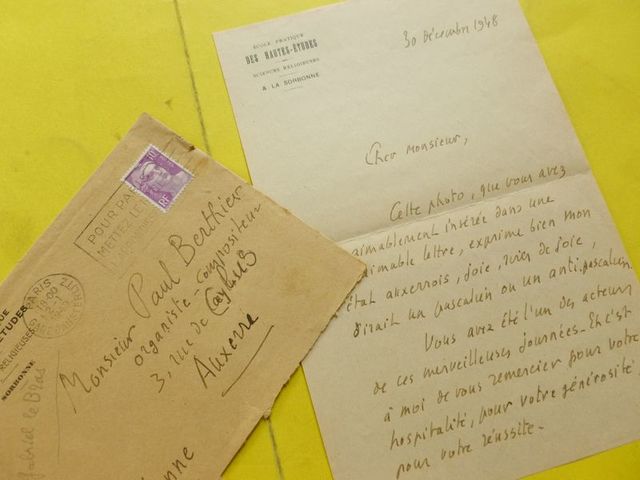 ÉCOLE PRATIQUE
DES HAUTES-ÉTUDES
SCIENCES RELIGIEUSES
A LA SORBONNE
30 Décembre 1948
Cher Monsieur,
Cette photo, que vous avez
aimablement insérée dans une
aimable lettre, exprime bien mon
état auxerrois, joie, joies de joie,
dirait un pascalien ou un anti-pascalien.
Vous avez été l'un des acteurs
de ces merveilleuses journées. Et c'est
à moi de vous remercier pour votre
hospitalité, pour votre générosité,
pour votre réussite.
POUR PAR
METTEZ LE
10F
RF
PARIS
18:00
2-1
Monsieur Paul Berthier
organiste - compositeur
3, rue de Caylus
Auxerre
Yonne
UE
ÉTUDES
RELIGIEUSES
SORBONNE
Gabriel le Bras